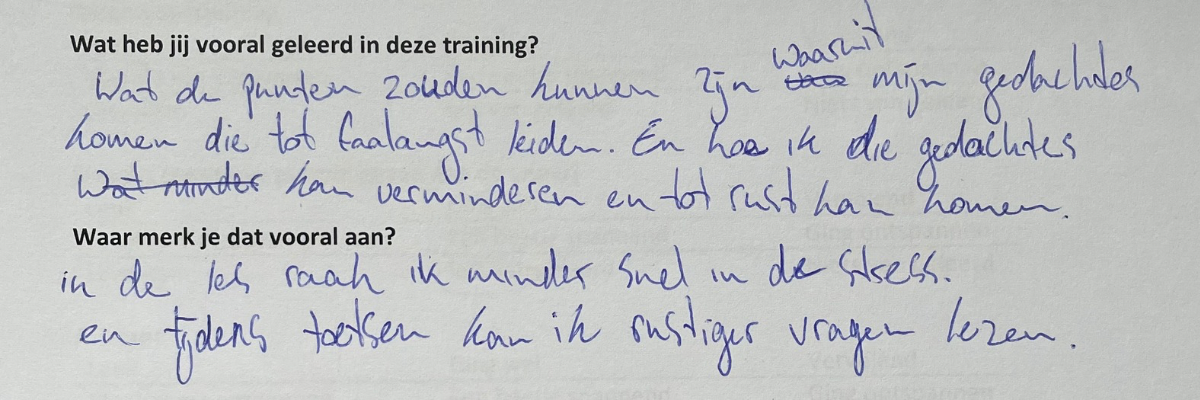 Wat heb jij vooral geleerd in deze training?
Wat de punten zouden kunnen zijn waaruit mijn gedachtes
komen die tot faalangst leiden. En hoe ik die gedachtes
Wat minder kan verminderen en tot rust kan komen.
Waar merk je dat vooral aan?
in de les raak ik minder snel in de stress.
en tijdens toetsen kan ik rustiger vragen lezen.